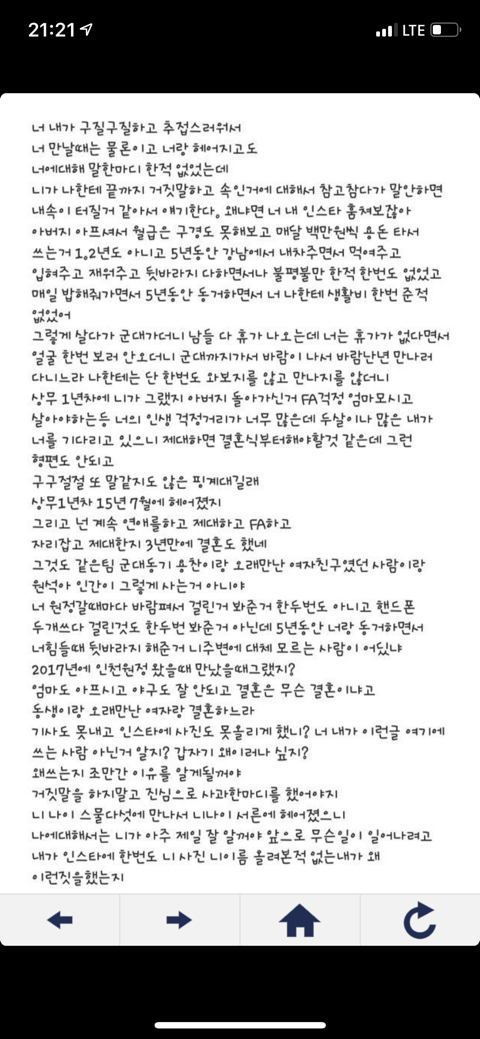 21:21
LTE
너 내가 구질구질하고 추접스러워서
너 만날때는 물론이고 너랑 헤어지고도
너에대해 말한마디 한적 없었는데
니가 나한테 끝까지 거짓말하고 속인거에 대해서 참고참다가 말안하면
내속이 터질거 같아서 얘기한다. 왜냐면 너 내 인스타 훔쳐보잖아
아버지 아프셔서 월급은 구경도 못해보고 매달 백만원씩 용돈 타서
쓰는거 1,2년도 아니고 5년동안 강남에서 내차주면서 먹여주고
입혀주고 재워주고 뒷바라지 다하면서나 불평불만 한적 한번도 없었고
매일 밥해줘가면서 5년동안 동거하면서 너 나한테 생활비 한번 준적
없었어
그렇게 살다가 군대가더니 남들 다 휴가 나오는데 너는 휴가가 없다면서
얼굴 한번 보러 안오더니 군대까지가서 바람이 나서 바람난년 만나러
다니느라 나한테는 단 한번도 와보지를 않고 만나지를 않더니
상무 1년차에 니가 그랬지 아버지 돌아가신거 FA걱정 엄마모시고
살아야하는등 너의 인생 걱정거리가 너무 많은데 두살이나 많은 내가
너를 기다리고 있으니 제대하면 결혼식부터해야할것 같은데 그런
형편도 안되고
구구절절 또 말같지도 않은 핑계대길래
상무1년차 15년 7월에 헤어졌지
그리고 넌 계속 연애를하고 제대하고 FA하고
자리잡고 제대한지 3년만에 결혼도 했네
그것도 같은팀 군대동기 용찬이랑 오래만난 여자친구였던 사람이랑
원석아 인간이 그렇게 사는거 아니야
너 원정갈때마다 바람펴서 걸린거 봐준거 한두번도 아니고 핸드폰
두개쓰다 걸린것도 한두번 봐준거 아닌데 5년동안 너랑 동거하면서
너힘들때 뒷바라지 해준거 니주변에 대체 모르는 사람이 어딨냐
2017년에 인천원정 왔을때 만났을때그랬지?
엄마도 아프시고 야구도 잘 안되고 결혼은 무슨 결혼이냐고
동생이랑 오래만난 여자랑 결혼하느라
기사도 못내고 인스타에 사진도 못올리게 했니? 너 내가 이런글 여기에
쓰는 사람 아닌거 알지? 갑자기 왜이러나 싶지?
왜쓰는지 조만간 이유를 알게될꺼야
거짓말을 하지말고 진심으로 사과한마디를 했어야지
니 나이 스물다섯에 만나서 니나이 서른에 헤어졌으니
나에대해서는 니가 아주 제일 잘 알꺼야 앞으로 무슨일이 일어나려고
내가 인스타에 한번도 니 사진 니이름 올려본적 없는내가 왜
이런짓을했는지